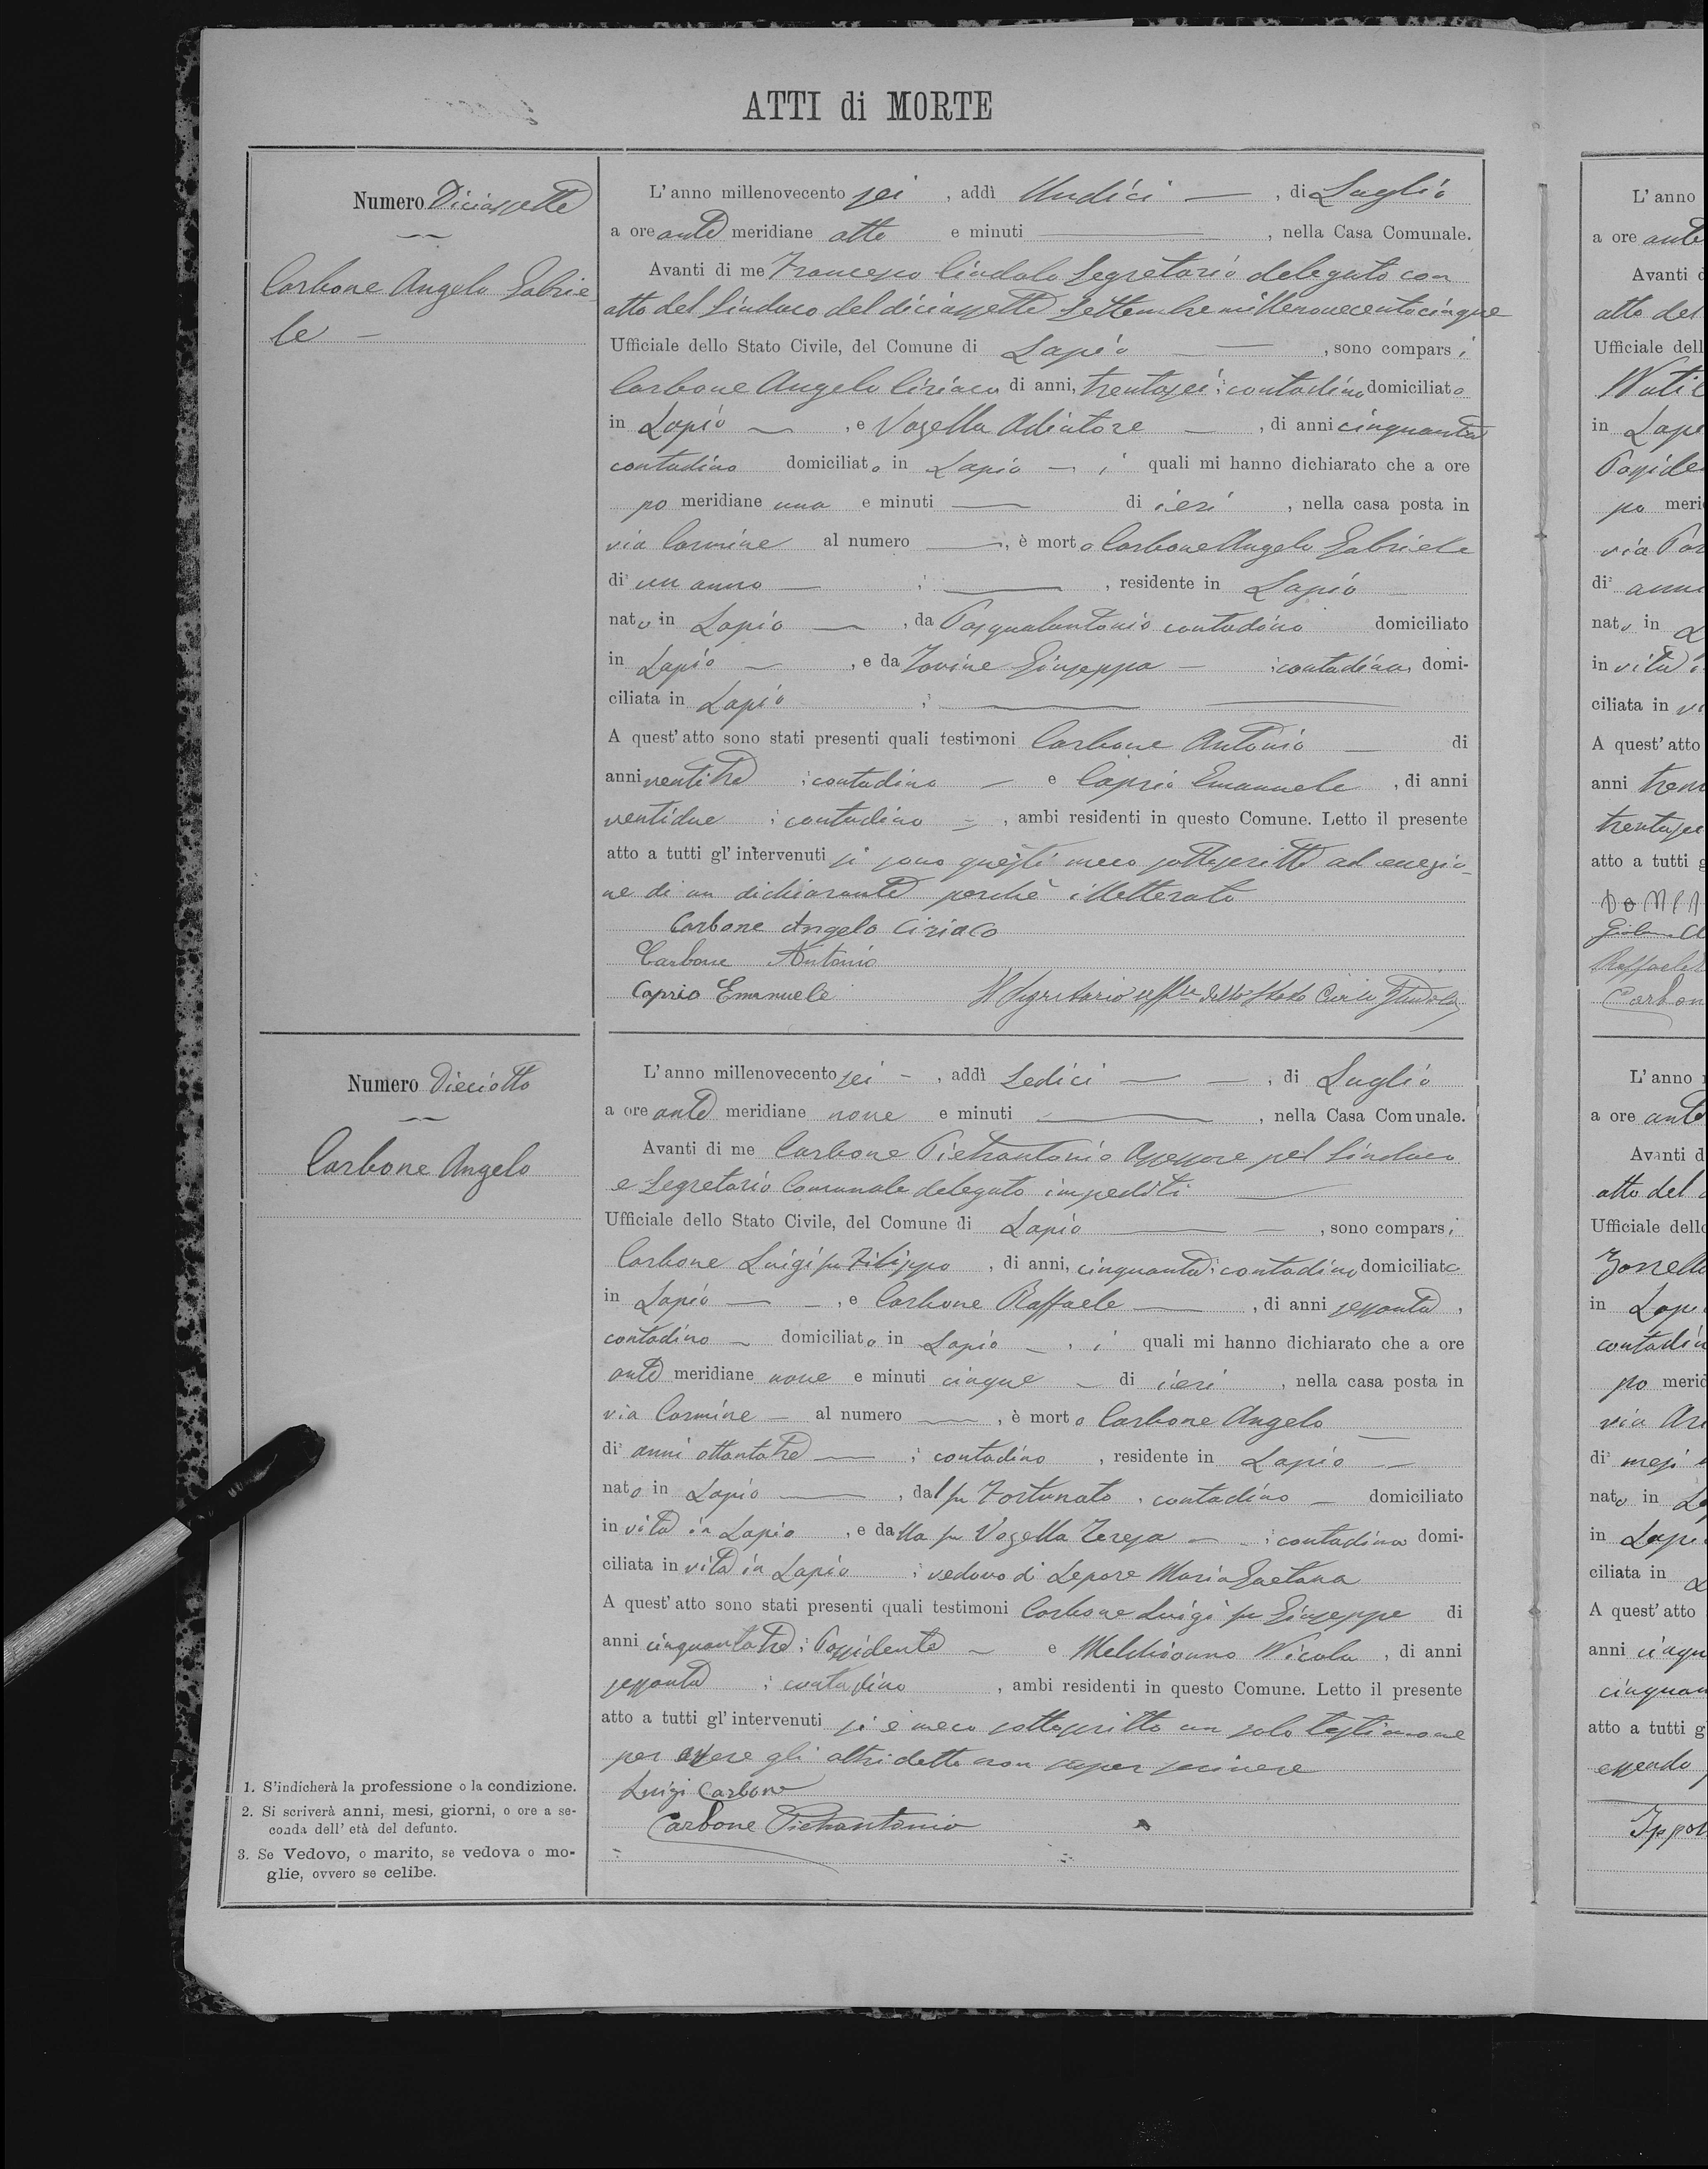 ATTI di MORTE
Numero Diciassette
Carbone Angelo Gabrie
le
L'anno millenovecento sei, addì Undici, di Luglio
a ore ante meridiane otto e minuti, nella Casa Comunale.
Avanti di me Francesco Segretario delegato con
atto del Sindaco del diciassette Settembre millenovecentocinque
Ufficiale dello Stato Civile, del Comune di Lapio, sono comparsi
Carbone Angelo Ciriaco di anni, trentasei; contadino domiciliato
in Lapio, e Vozella Adiutore, di anni cinquanta
contadino domiciliato in Lapio i quali mi hanno dichiarato che a ore
po meridiane una e minuti di ieri, nella casa posta in
via Carmine al numero, è morto Carbone Angelo Gabriele
di² un anno, residente in Lapio
nato in Lapio, da Pasqualantonio contadino domiciliato
in Lapio, e da Iovine Giuseppa; contadina, domi-
ciliata in Lapio
A quest'atto sono stati presenti quali testimoni Carbone Antonio di
anni ventitre; contadino e Caprio Emanuele, di anni
ventidue; contadino, ambi residenti in questo Comune. Letto il presente
atto a tutti gl'intervenuti si sono questi meco sottoscritti ad eccezio-
ne di un dichiarante perchè illetterato
Carbone Angelo Ciriaco
Carbone Antonio
Caprio Emanuele
Il Segretario uff.le dello Stato Civile
Numero Dieciotto
Carbone Angelo
L'anno millenovecento sei, addì Sedici, di Luglio
a ore ante meridiane nove e minuti, nella Casa Comunale.
Avanti di me Carbone Pietrantonio Assessore pel Sindaco
e Segretario Comunale delegato impediti
Ufficiale dello Stato Civile, del Comune di Lapio, sono comparsi
Carbone Luigi fu Filippo, di anni, cinquanta; contadino domiciliato
in Lapio, e Carbone Raffaele, di anni sessanta,
contadino domiciliato in Lapio, i quali mi hanno dichiarato che a ore
ante meridiane nove e minuti cinque di ieri, nella casa posta in
via Carmine al numero, è morto Carbone Angelo
di² anni ottantatre; contadino, residente in Lapio
nato in Lapio, dal fu Fortunato, contadino domiciliato
in vita in Lapio, e dalla fu Vozella Teresa; contadina domi-
ciliata in vita in Lapio; vedovo di Lepore Maria Gaetana
A quest'atto sono stati presenti quali testimoni Carbone Luigi fu Giuseppe di
anni cinquantatre; Possidente e Melchionno Nicola, di anni
sessanta; contadino, ambi residenti in questo Comune. Letto il presente
atto a tutti gl'intervenuti si è meco sottoscritto un solo testimone
per avere gli altri detto non saper scrivere
Luigi Carbone
Carbone Pietrantonio
1. S'indicherà la professione o la condizione.
2. Si scriverà anni, mesi, giorni, o ore a se-
conda dell'età del defunto.
3. Se Vedovo, o marito, se vedova o mo-
glie, ovvero se celibe.
L'anno
a ore ante
Avanti
atto del
Ufficiale dell
in
po meri
via
di²
nato in
in vita
ciliata in
A quest'atto
anni
atto a tutti
L'anno
a ore ante
Avanti d
atto del
Ufficiale dello
in
po merid
via
di² mesi
nato in
in Lapi
ciliata in
A quest'atto
anni
atto a tutti g
essendo